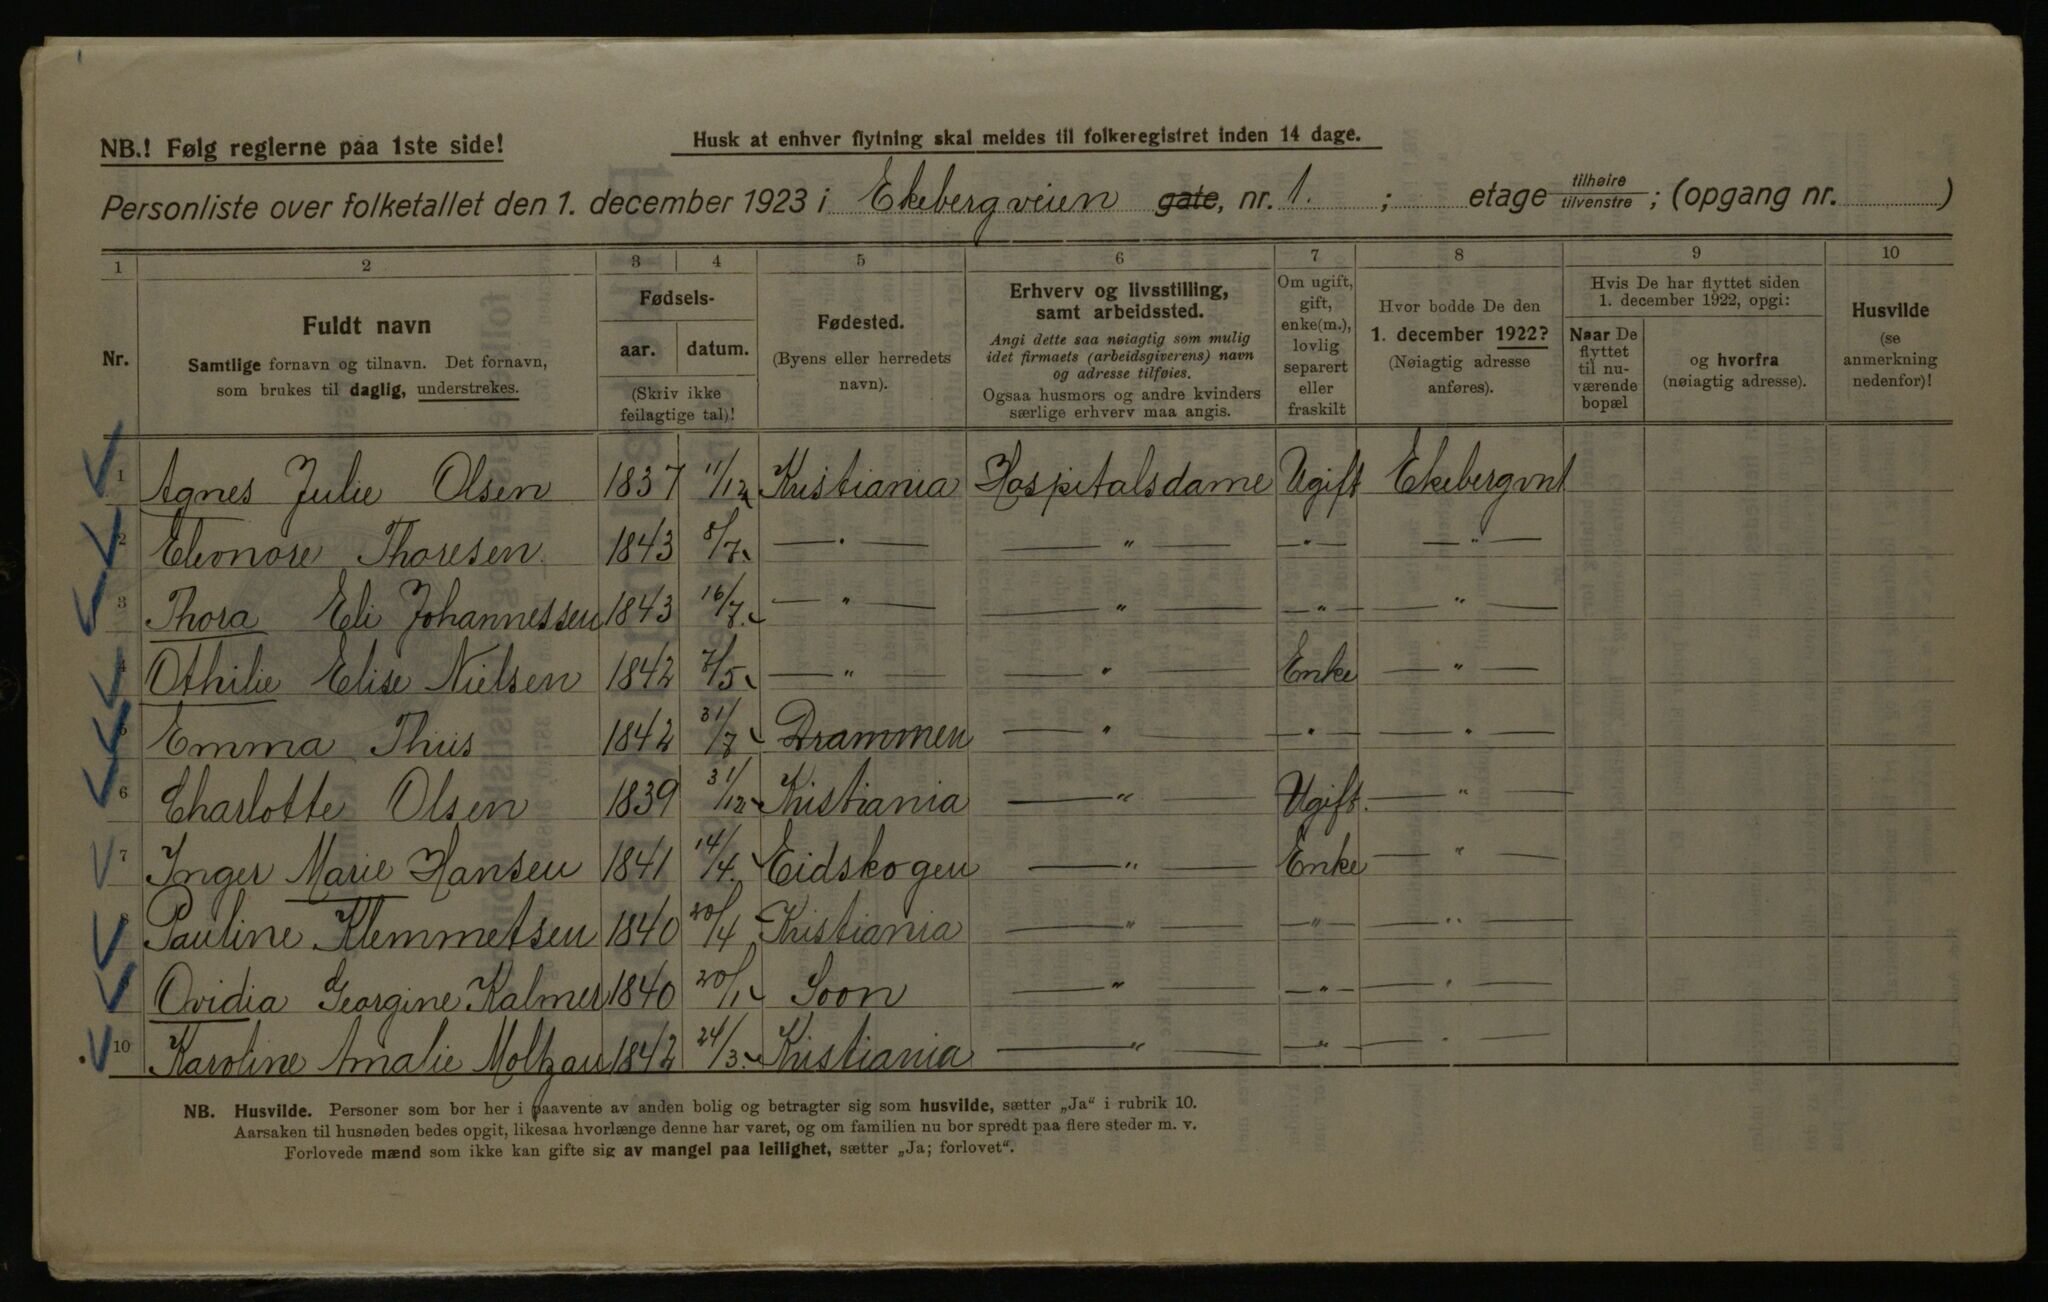 NB.! Følg reglerne paa 1ste side!
Husk at enhver flytning skal meldes til folkeregistret inden 14 dage.
Personliste over folketallet den 1. december 1923 i Ekebergveien gate, nr. 1. ; etage tilhøire tilvenstre ; (opgang nr. )
1 2 3 4 5 6 7 8 9 10
Nr.
Fuldt navn
Samtlige fornavn og tilnavn. Det fornavn,
som brukes til daglig, understrekes.
Fødsels-
aar. datum.
(Skriv ikke
feilagtige tal)!
Fødested.
(Byens eller herredets
navn).
Erhverv og livsstilling,
samt arbeidssted.
Angi dette saa nøiagtig som mulig
idet firmaets (arbeidsgiverens) navn
og adresse tilføies.
Ogsaa husmors og andre kvinders
særlige erhverv maa angis.
Om ugift,
gift,
enke(m.),
lovlig
separert
eller
fraskilt
Hvor bodde De den
1. december 1922?
(Nøiagtig adresse
anføres).
Hvis De har flyttet siden
1. december 1922, opgi:
Naar De
flyttet
til nu-
værende
bopæl
og hvorfra
(nøiagtig adresse).
Husvilde
(se
anmerkning
nedenfor)!
1 Agnes Julie Olsen 1837 11/12 Kristiania Hospitalsdame Ugift Ekebergvn1
2 Eleonore Thoresen 1843 8/7. — " — — " — — " — — " —
3 Thora Eli Johannessen 1843 16/7. — " — — " — — " — — " —
4 Othilie Elise Nielsen 1842 7/5 — " — — " — Enke — " —
5 Emma Thiis 1842 31/7 Drammen — " — — " — — " —
6 Charlotte Olsen 1839 31/12 Kristiania — " — Ugift. — " —
7 Inger Marie Hansen 1841 14/4. Eidskogen — " — Enke — " —
8 Pauline Klemmetsen 1840 20/4 Kristiania — " — — " — — " —
9 Ovidia Georgine Kalmer 1840 20/1 Soon — " — — " — — " —
10 Karoline Amalie Moltzau 1842 24/3. Kristiania — " — — " — — " —
NB. Husvilde. Personer som bor her i paavente av anden bolig og betragter sig som husvilde, sætter „Ja" i rubrik 10.
Aarsaken til husnøden bedes opgit, likesaa hvorlænge denne har varet, og om familien nu bor spredt paa flere steder m. v.
Forlovede mænd som ikke kan gifte sig av mangel paa leilighet, sætter „Ja; forlovet".